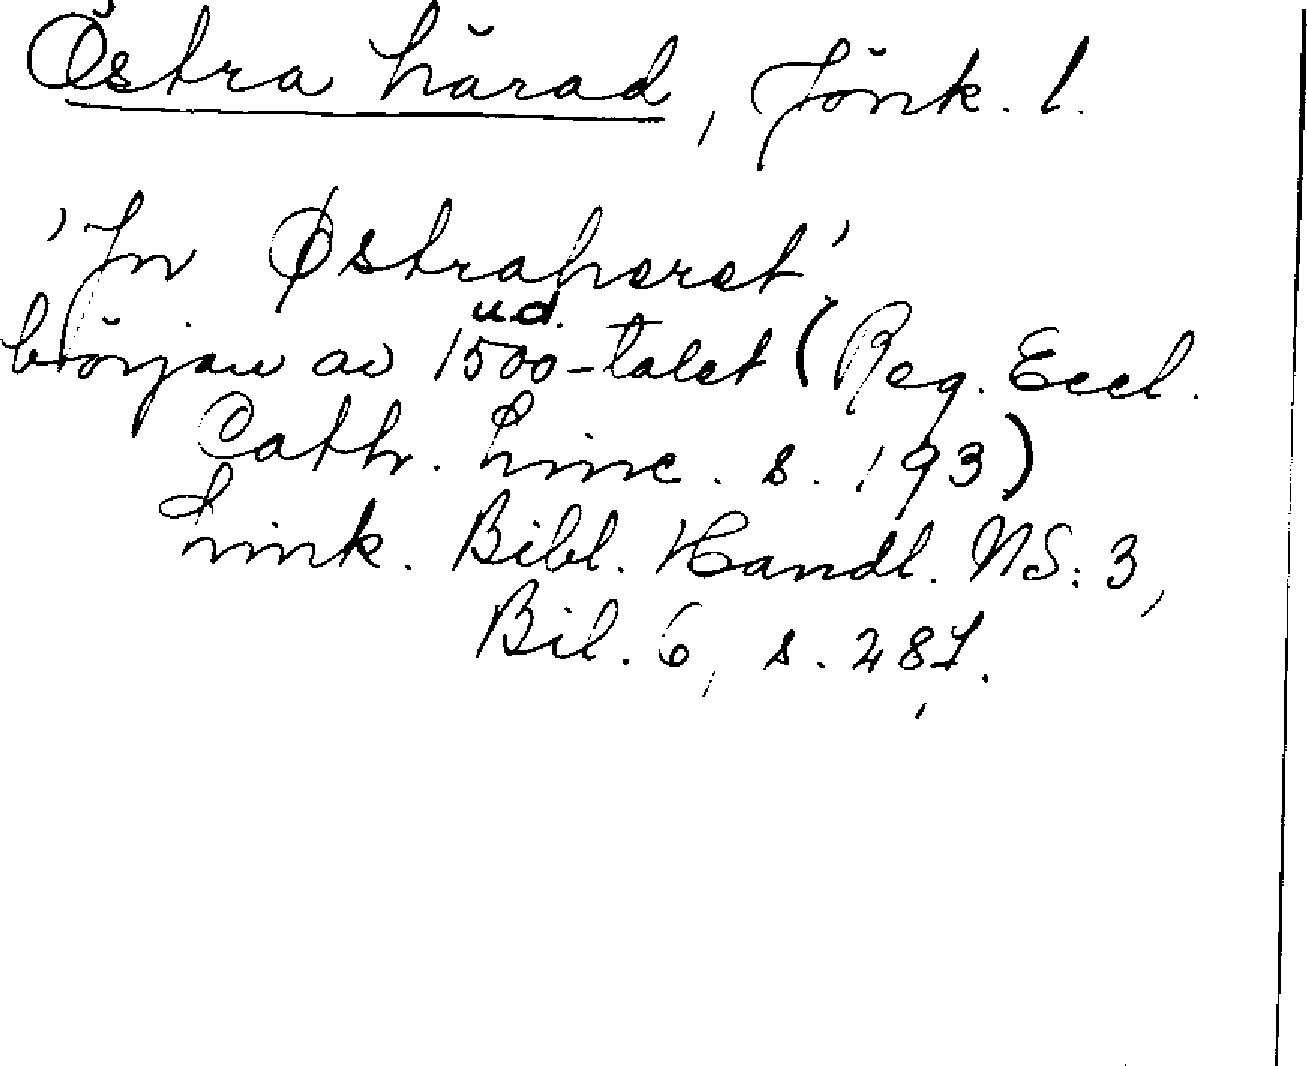 Östra härad, Jönk. l.
'In Østraheret'
u.d.
början av 1500-talet (Reg. Eccl.
Cath. Linc. s. 193)
Link. Bibl. Handl. NS: 3,
Bil. 6, s. 287.